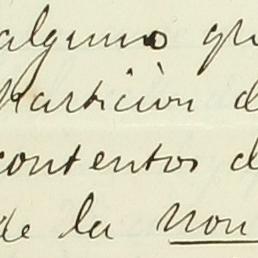 alguno qu
partición d
contentos d
de la non